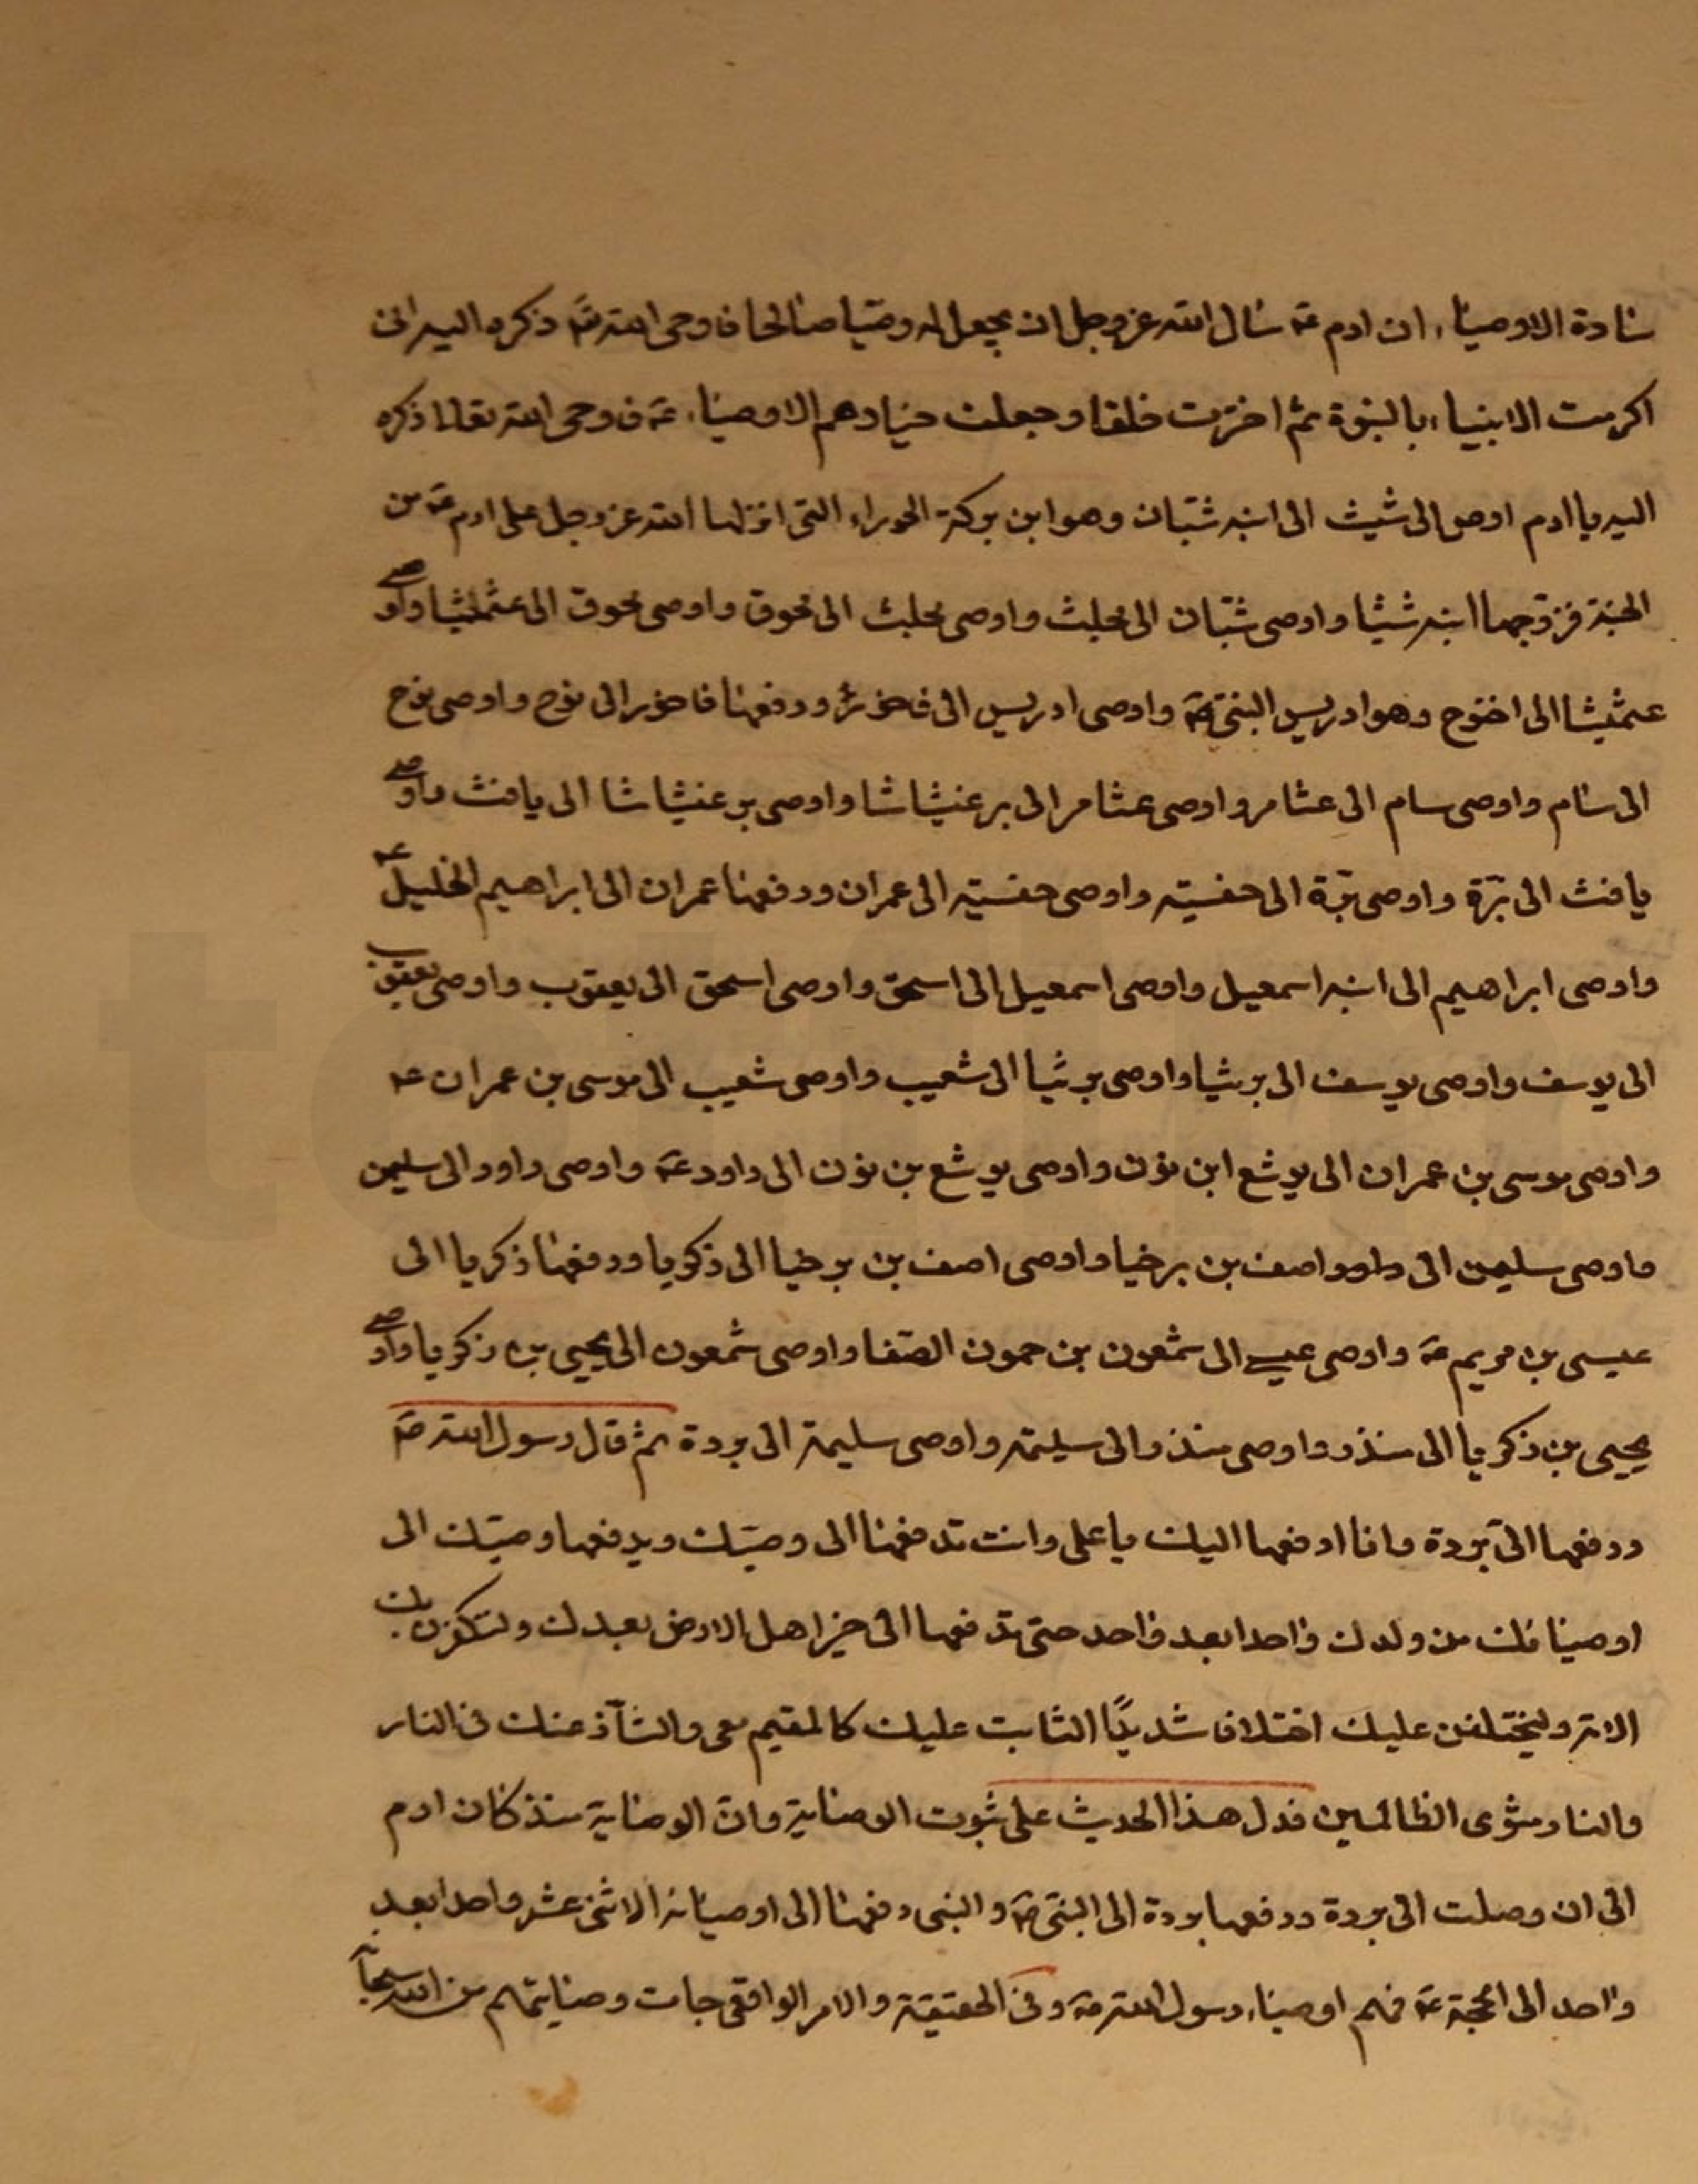 سادة الاوصياء ان ادم ع‍ سال الله عز وجل ان يجعل له وصيا صالحا فاوحى الله تع‍ ذكره اليه انى
اكرمت الانبيا، بالنبوة ثم اخترت خلقا وجعلت خيارهم الاوصيا، ع‍ فاوحى الله تعالى ذكره
اليه يا ادم اوص الى شيث الى ابنه شبان وهو ابن بركة الحوراء التى انزلها الله عز وجل على ادم ع‍ من
الجنة فزوجها ابنه شيثا واوصى شبان الى محلث واوصى محلث الى محوق واوصى محوق الى عثمثيثا واوصى
عثميثا الى اخنوخ وهو ادريس النبى ع‍ واوصى ادريس الى فاخور ودفعها فاخور الى نوح واوصى نوح
الى سام واوصى سام الى عثامر واوصى عثامر الى برعنيثاشا واوصى برعنيثاشا الى يافث واوصى
يافث الى برة واوصى برة الى حفسيه واوصى حفسيه الى عمران ودفعها عمران الى ابراهيم الخليل ع‍
واوصى ابراهيم الى ابنه اسمعيل واوصى اسمعيل الى اسحق واوصى اسحق الى يعقوب واوصى يعقوب
الى يوسف واوصى يوسف الى برثيا واوصى برثيا الى شعيب واوصى شعيب الى موسى بن عمران ع‍
واوصى موسى بن عمران الى يوشع ابن نون واوصى يوشع بن نون الى داود ع‍ واوصى داود الى سليمن
واوصى سليمن الى اصف بن برخيا واوصى اصف بن برخيا الى زكريا ودفعها زكريا الى
عيسى بن مريم ع‍ واوصى عيسى الى شمعون بن حمون الصفا واوصى شمعون الى يحيى بن زكريا واوصى
يحيى بن زكريا الى منذر واوصى منذر الى سليمة واوصى سليمة الى بردة ثم قال رسول الله ص‍
ودفعها الى بردة وانا ادفعها اليك يا على وانت تدفعها الى وصيك ويدفعها وصيك الى
اوصيائك من ولدك واحدا بعد واحد حتى تدفعها الى خير اهل الارض بعدك ولتكفرن بك
الامة وليختلفن عليك اختلافا شديدا الثابت عليك كالمقيم معى والشاذ عنك فى النار
والنار مثوى الظالمين فدل هذا الحديث على ثبوت الوصاية وان الوصاية منذ كان ادم
الى ان وصلت الى بردة ودفعها بردة الى النبى ص‍ والنبى دفعها الى اوصيائه الاثنى عشر واحدا بعد
واحد الى الحجة ع‍ فهم اوصيا، رسول الله ص‍ وفى الحقيقة والامر الواقعى جات وصايتهم من الله سبحانه